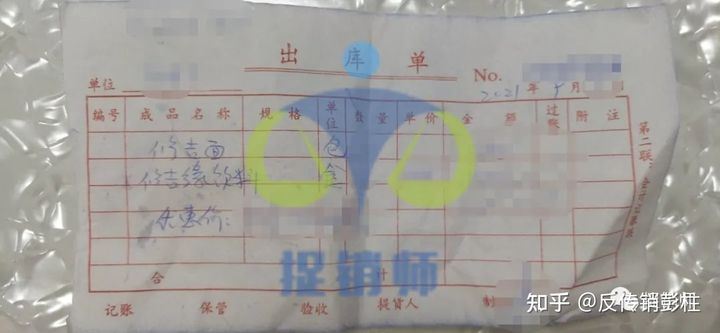 出 库 单
No.
单位
2021 年 5 月
编号 成品名称 规格 单位 数量 单价 金额 过账 附注
修吉面 包
修吉缘饮料 盒
优惠价:
合 计
记账 保管 验收 提货人 制
第二联:
捉销师
知乎 @反传销彭桂